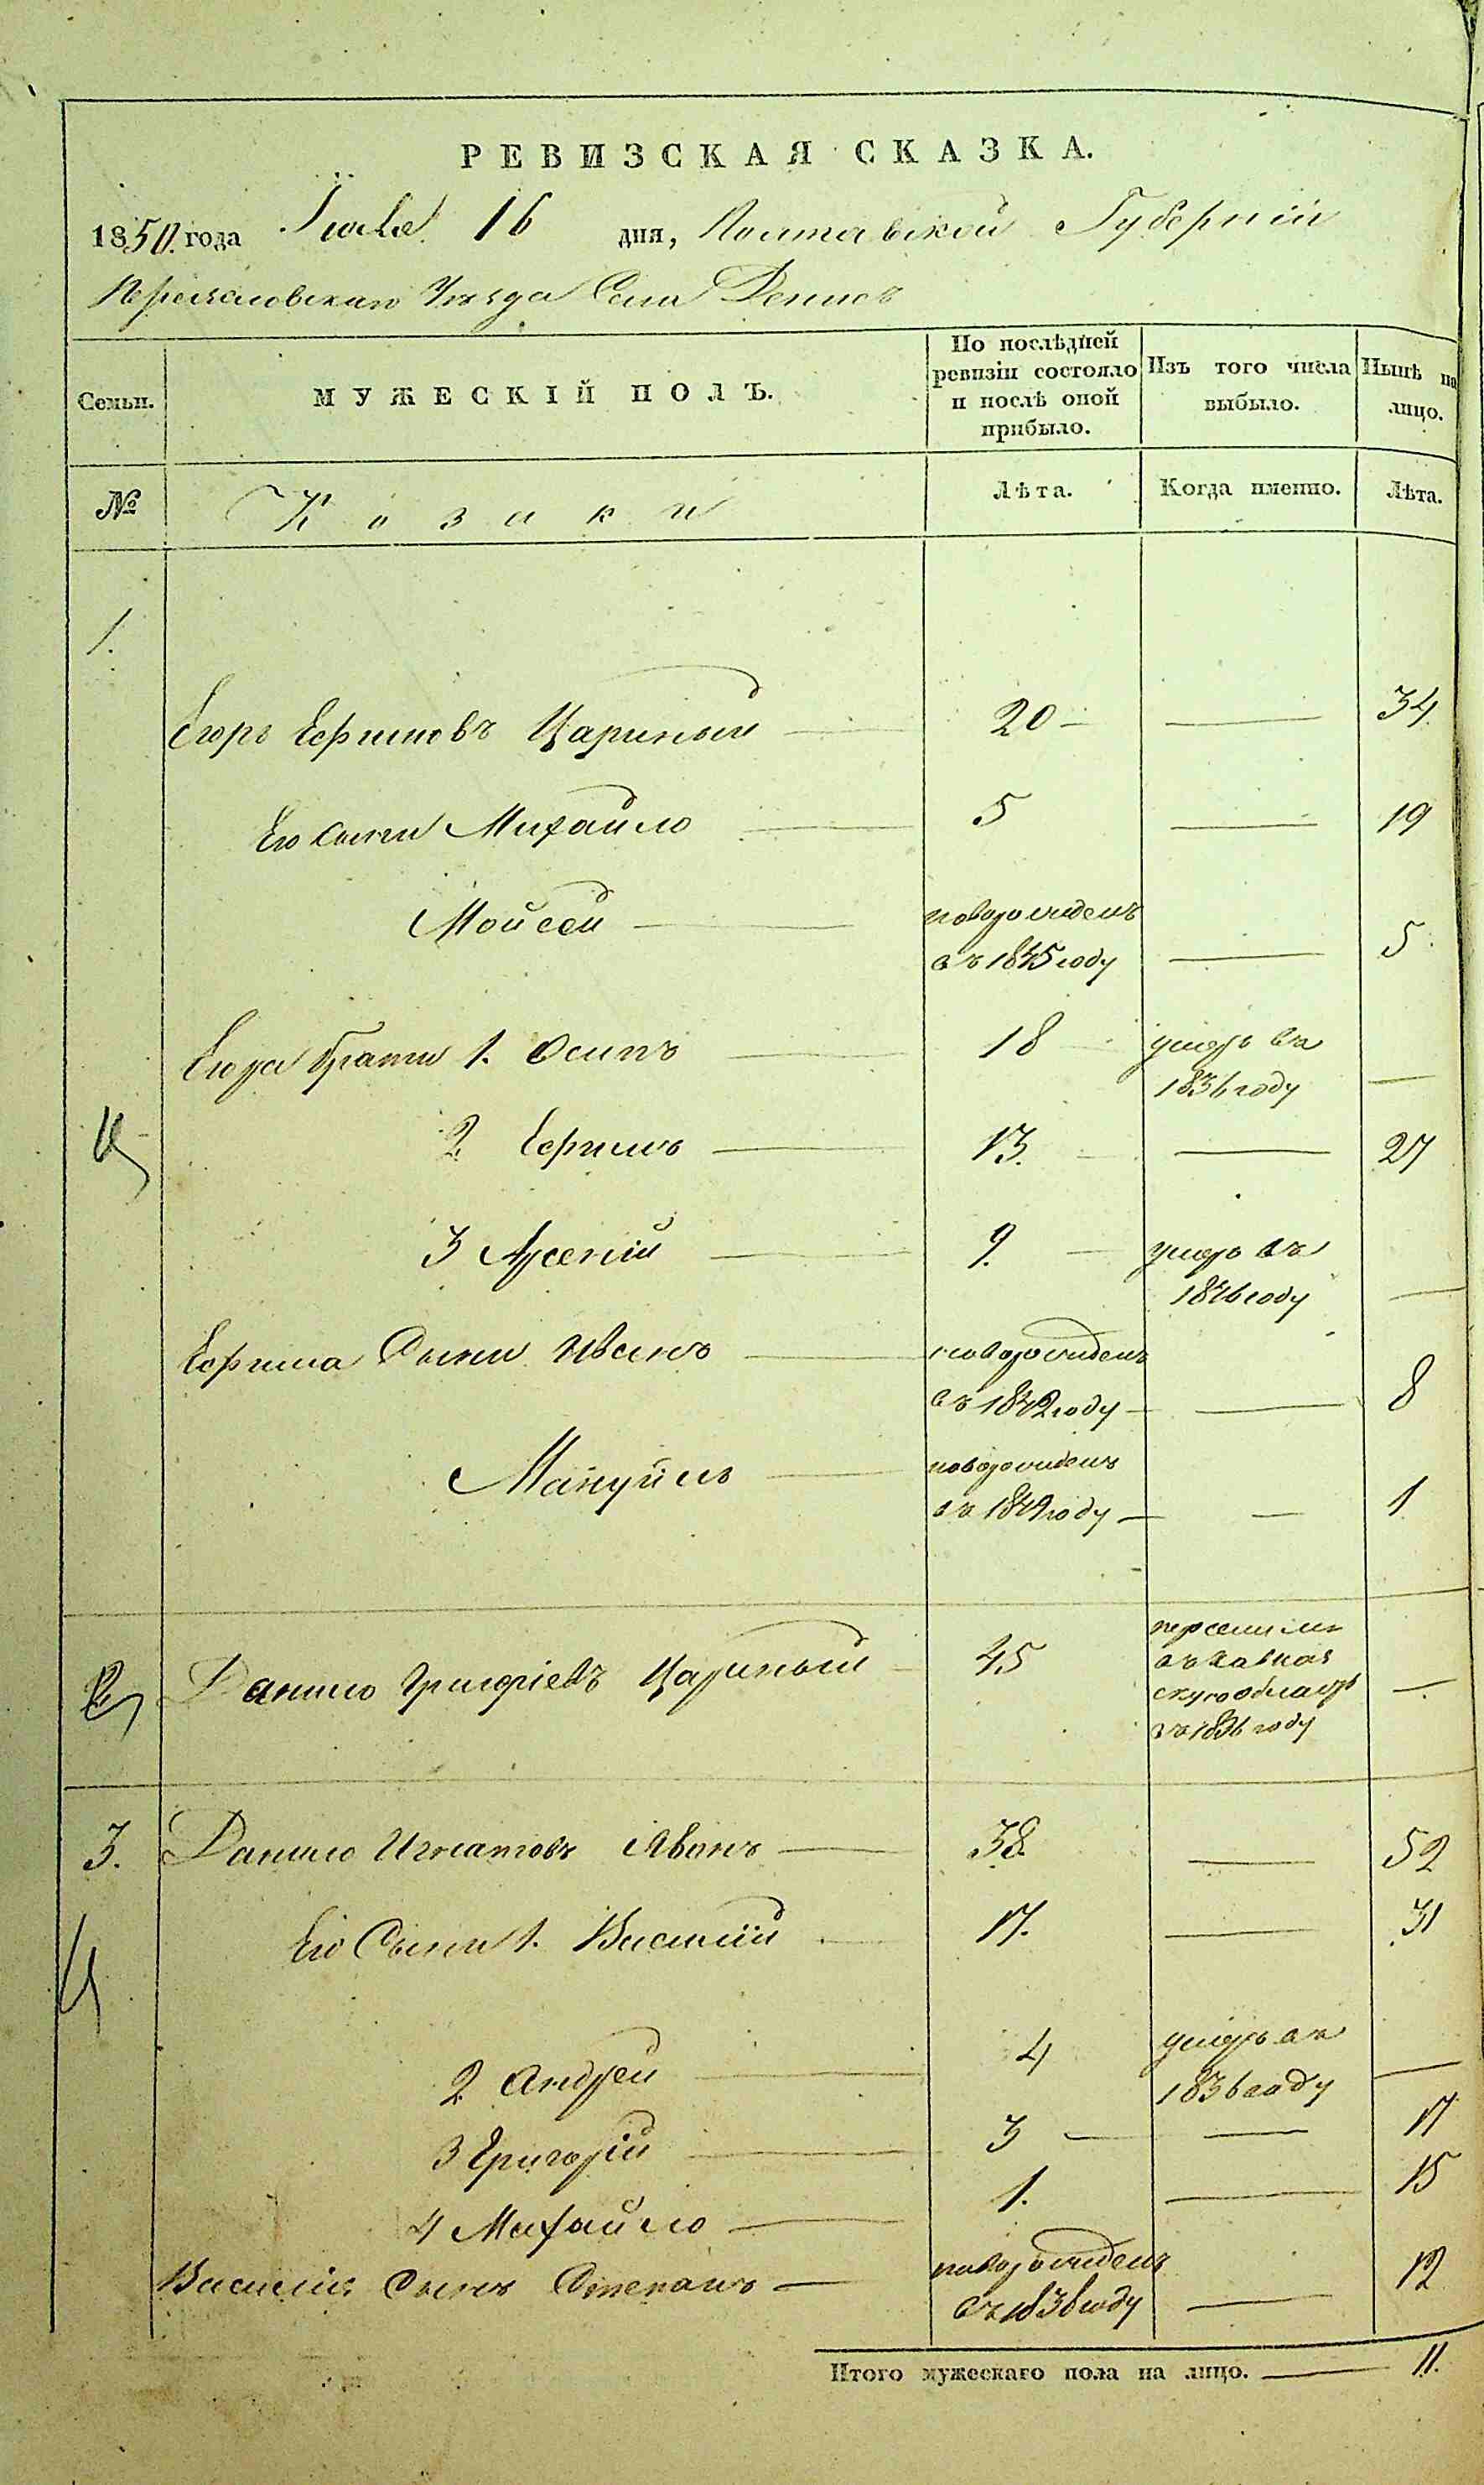 РЕВИЗСКАЯ СКАЗКА.
1850 года Іюля 16 дня, Полтавской Губерніи
Переяславскаго Уезда Села
Семьи.
МУЖЕСКІЙ ПОЛЪ.
По послѣдней ревизіи состояло и послѣ оной прибыло.
Изъ того числа выбыло.
Нынѣ на лицо.
№
Козаки
Лѣта.
Когда именно.
Лѣта.
1.
Егоръ Ефимовъ Цариный 20 34
Его сыни Михайло 5 19
Мойсей новорожденъ въ 1845 году 5
Егора брати 1. Осипъ 18 умеръ въ 1836 году
2 Ефимъ 13. 27
3 Арсеній 9. умеръ въ 1846 году
Ефима сыни Иванъ новорожденъ въ 1842 году 8
Мануйлъ новорожденъ въ 1849 году 1
2 Данило Григоріевъ Цариный 45 въ 1836 году
3. Данило Игнатовъ 38. 52
Его Сыни 1. Василій 17. 31
2 Андрей 4 умеръ въ 1836 году
3 Григорій 3 17
4 Михайло 1. 15
Василія сынъ Степанъ новорожденъ въ 1838 году 12
Итого мужескаго пола на лицо. 11.